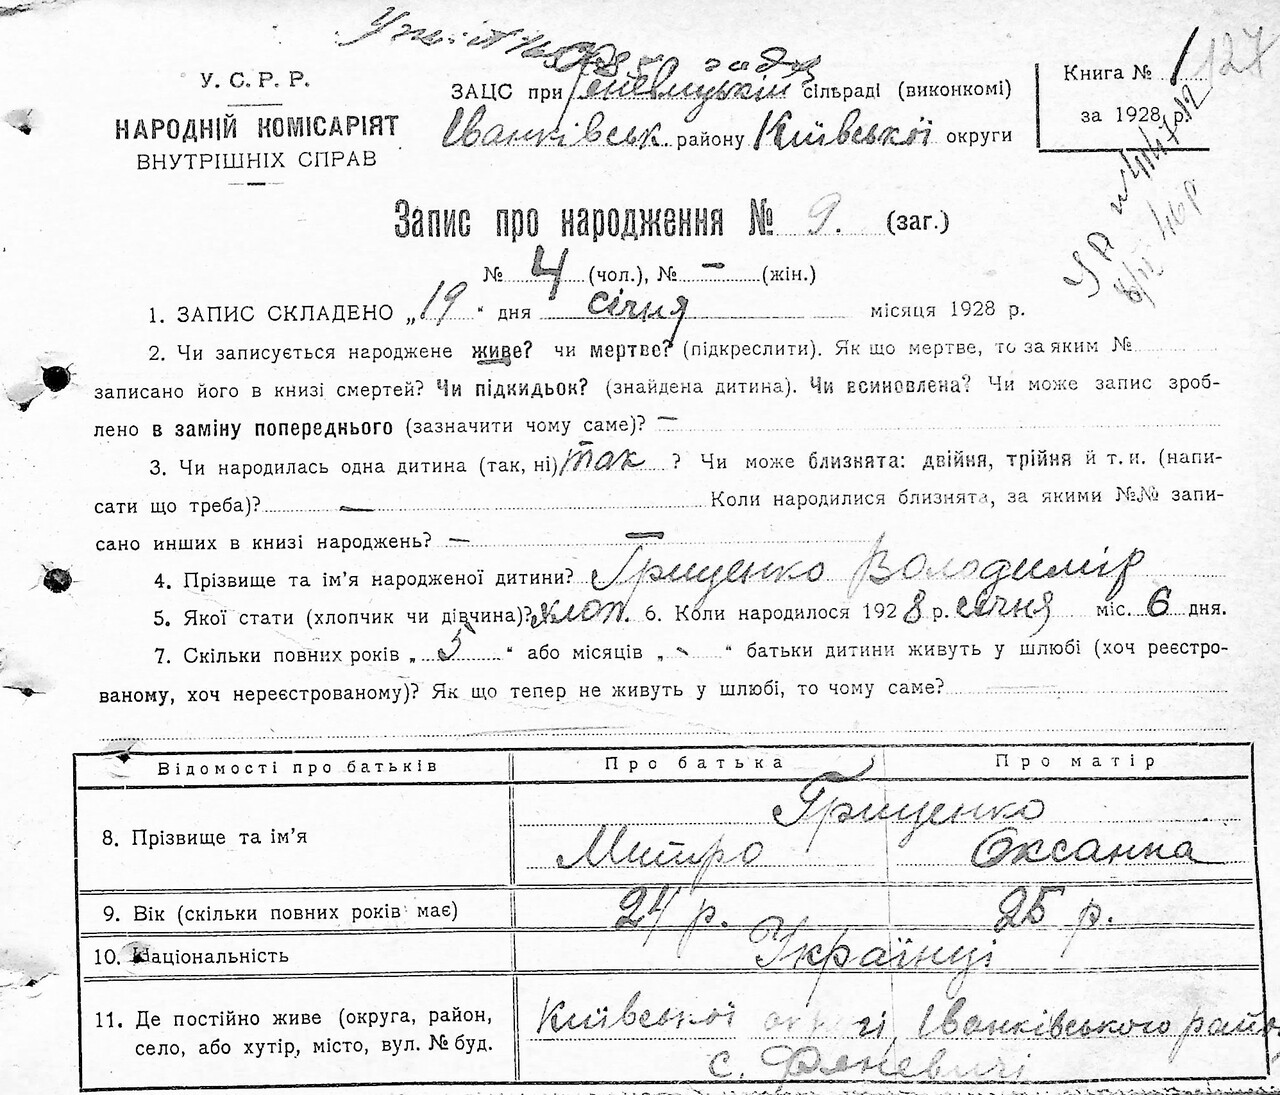 У. С. Р. Р.
НАРОДНІЙ КОМІСАРІЯТ
ВНУТРІШНІХ СПРАВ
ЗАЦС при сільраді (виконкомі)
Іванківськ. району Київської округи
Книга № 1 127
за 1928 р.
Запис про народження № 9. (заг.)
№ 4 (чол.), № — (жін.)
1. ЗАПИС СКЛАДЕНО „19" дня січня місяця 1928 р.
2. Чи записується народжене живе? чи мертве? (підкреслити). Як що мертве, то за яким №
записано його в книзі смертей? Чи підкидьок? (знайдена дитина). Чи всиновлена? Чи може запис зроб-
лено в заміну попереднього (зазначити чому саме)? —
3. Чи народилась одна дитина (так, ні) так ? Чи може близнята: двійня, трійня й т. и. (напи-
сати що треба)? — Коли народилися близнята, за якими №№ запи-
сано инших в книзі народжень? — —
4. Прізвище та ім'я народженої дитини? Грищенко Володимір
5. Якої стати (хлопчик чи дівчина)? хлоп. 6. Коли народилося 1928 р. січня міс. 6 дня.
7. Скільки повних років „ 5 " або місяців „ - " батьки дитини живуть у шлюбі (хоч реєстро-
ваному, хоч нереєстрованому)? Як що тепер не живуть у шлюбі, то чому саме?
Відомості про батьків Про батька Про матір
8. Прізвище та ім'я Грищенко
Митро Оксанна
9. Вік (скільки повних років має) 24 р. 25 р.
10. Національність Українці
11. Де постійно живе (округа, район, Київської округі, Іванківського райо
село, або хутір, місто, вул. № буд. с. Феневичі